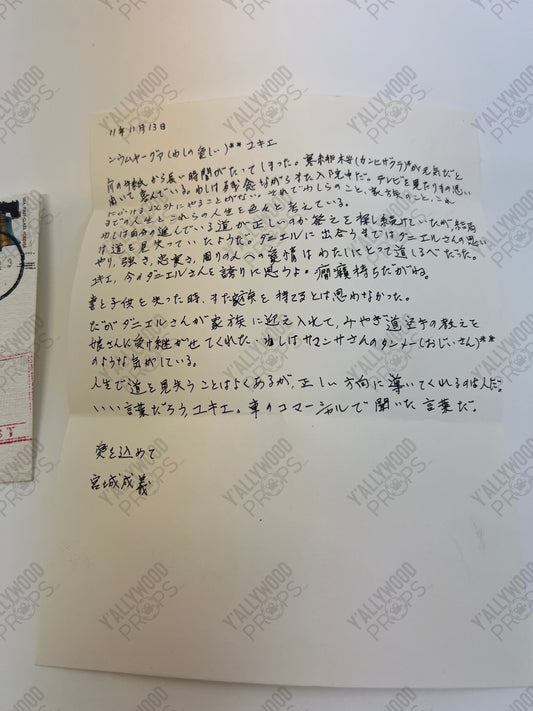 11年11月13日
ムヤーグァ(わしの愛しい)** ユキエ
前の手紙から長い時間がたってしまった。(カンヒザクラ)*が元気だと
聞いて喜んでいる。わしは残念ながらまた入院中だ。テレビを見たり思い
にふける以外にやることがない。それでわしらのこと、のこと、これ
までの人生とこれからの人生を色々と考えている。
わしは自分の進んでいる道が正しいのか答えを探し続けていたが結局
は道を見失っていたようだ。ダニエルに出会うまではダニエルさんの思い
やり、強さ、忠実さ、周りの人への愛情はわたしにとって道しるべだった。
ユキエ、今のダニエルさんを誇りに思うよ。癇癪持ちだがね。
妻と子供を失った時、また家族を持てるとは思わなかった。
だがダニエルさんが家族に迎え入れて、みやぎ道空手の教えを
娘さんに受け継がせてくれた。わしはサマンサさんのタンメー(おじいさん)**
のような気がしている。
人生で道を見失うことはよくあるが、正しい方向に導いてくれるのは人だ。
いい言葉だろう、ユキエ。車のコマーシャルで聞いた言葉だ。
愛を込めて
宮城成義
Y'ALLYWOOD
PROPS